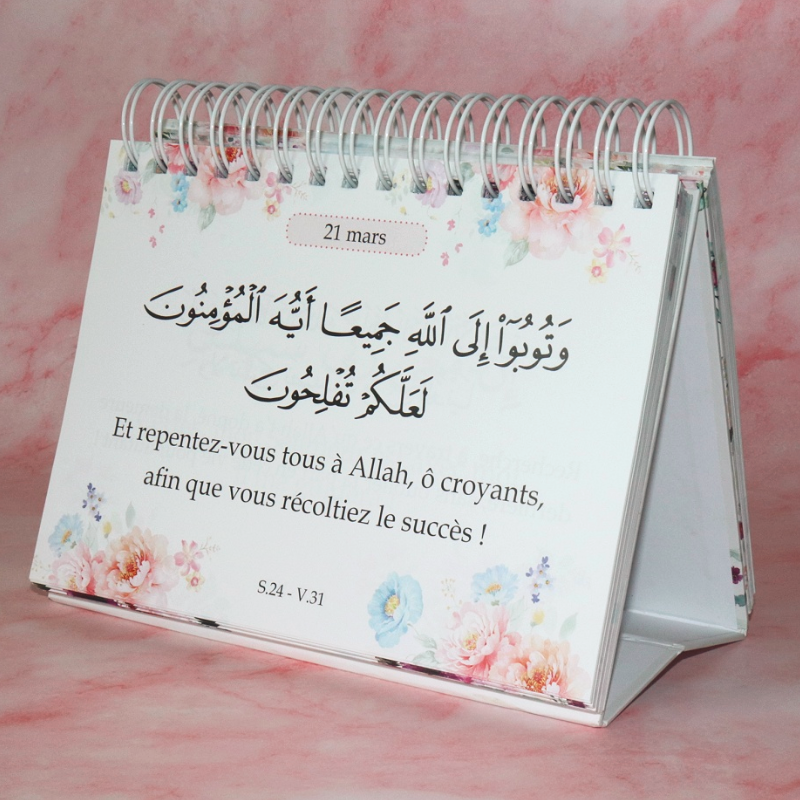 21 mars
وَتُوبُوٓا۟ إِلَى ٱللَّهِ جَمِيعًا أَيُّهَ ٱلْمُؤْمِنُونَ
لَعَلَّكُمْ تُفْلِحُونَ
Et repentez-vous tous à Allah, ô croyants,
afin que vous récoltiez le succès !
S.24 - V.31